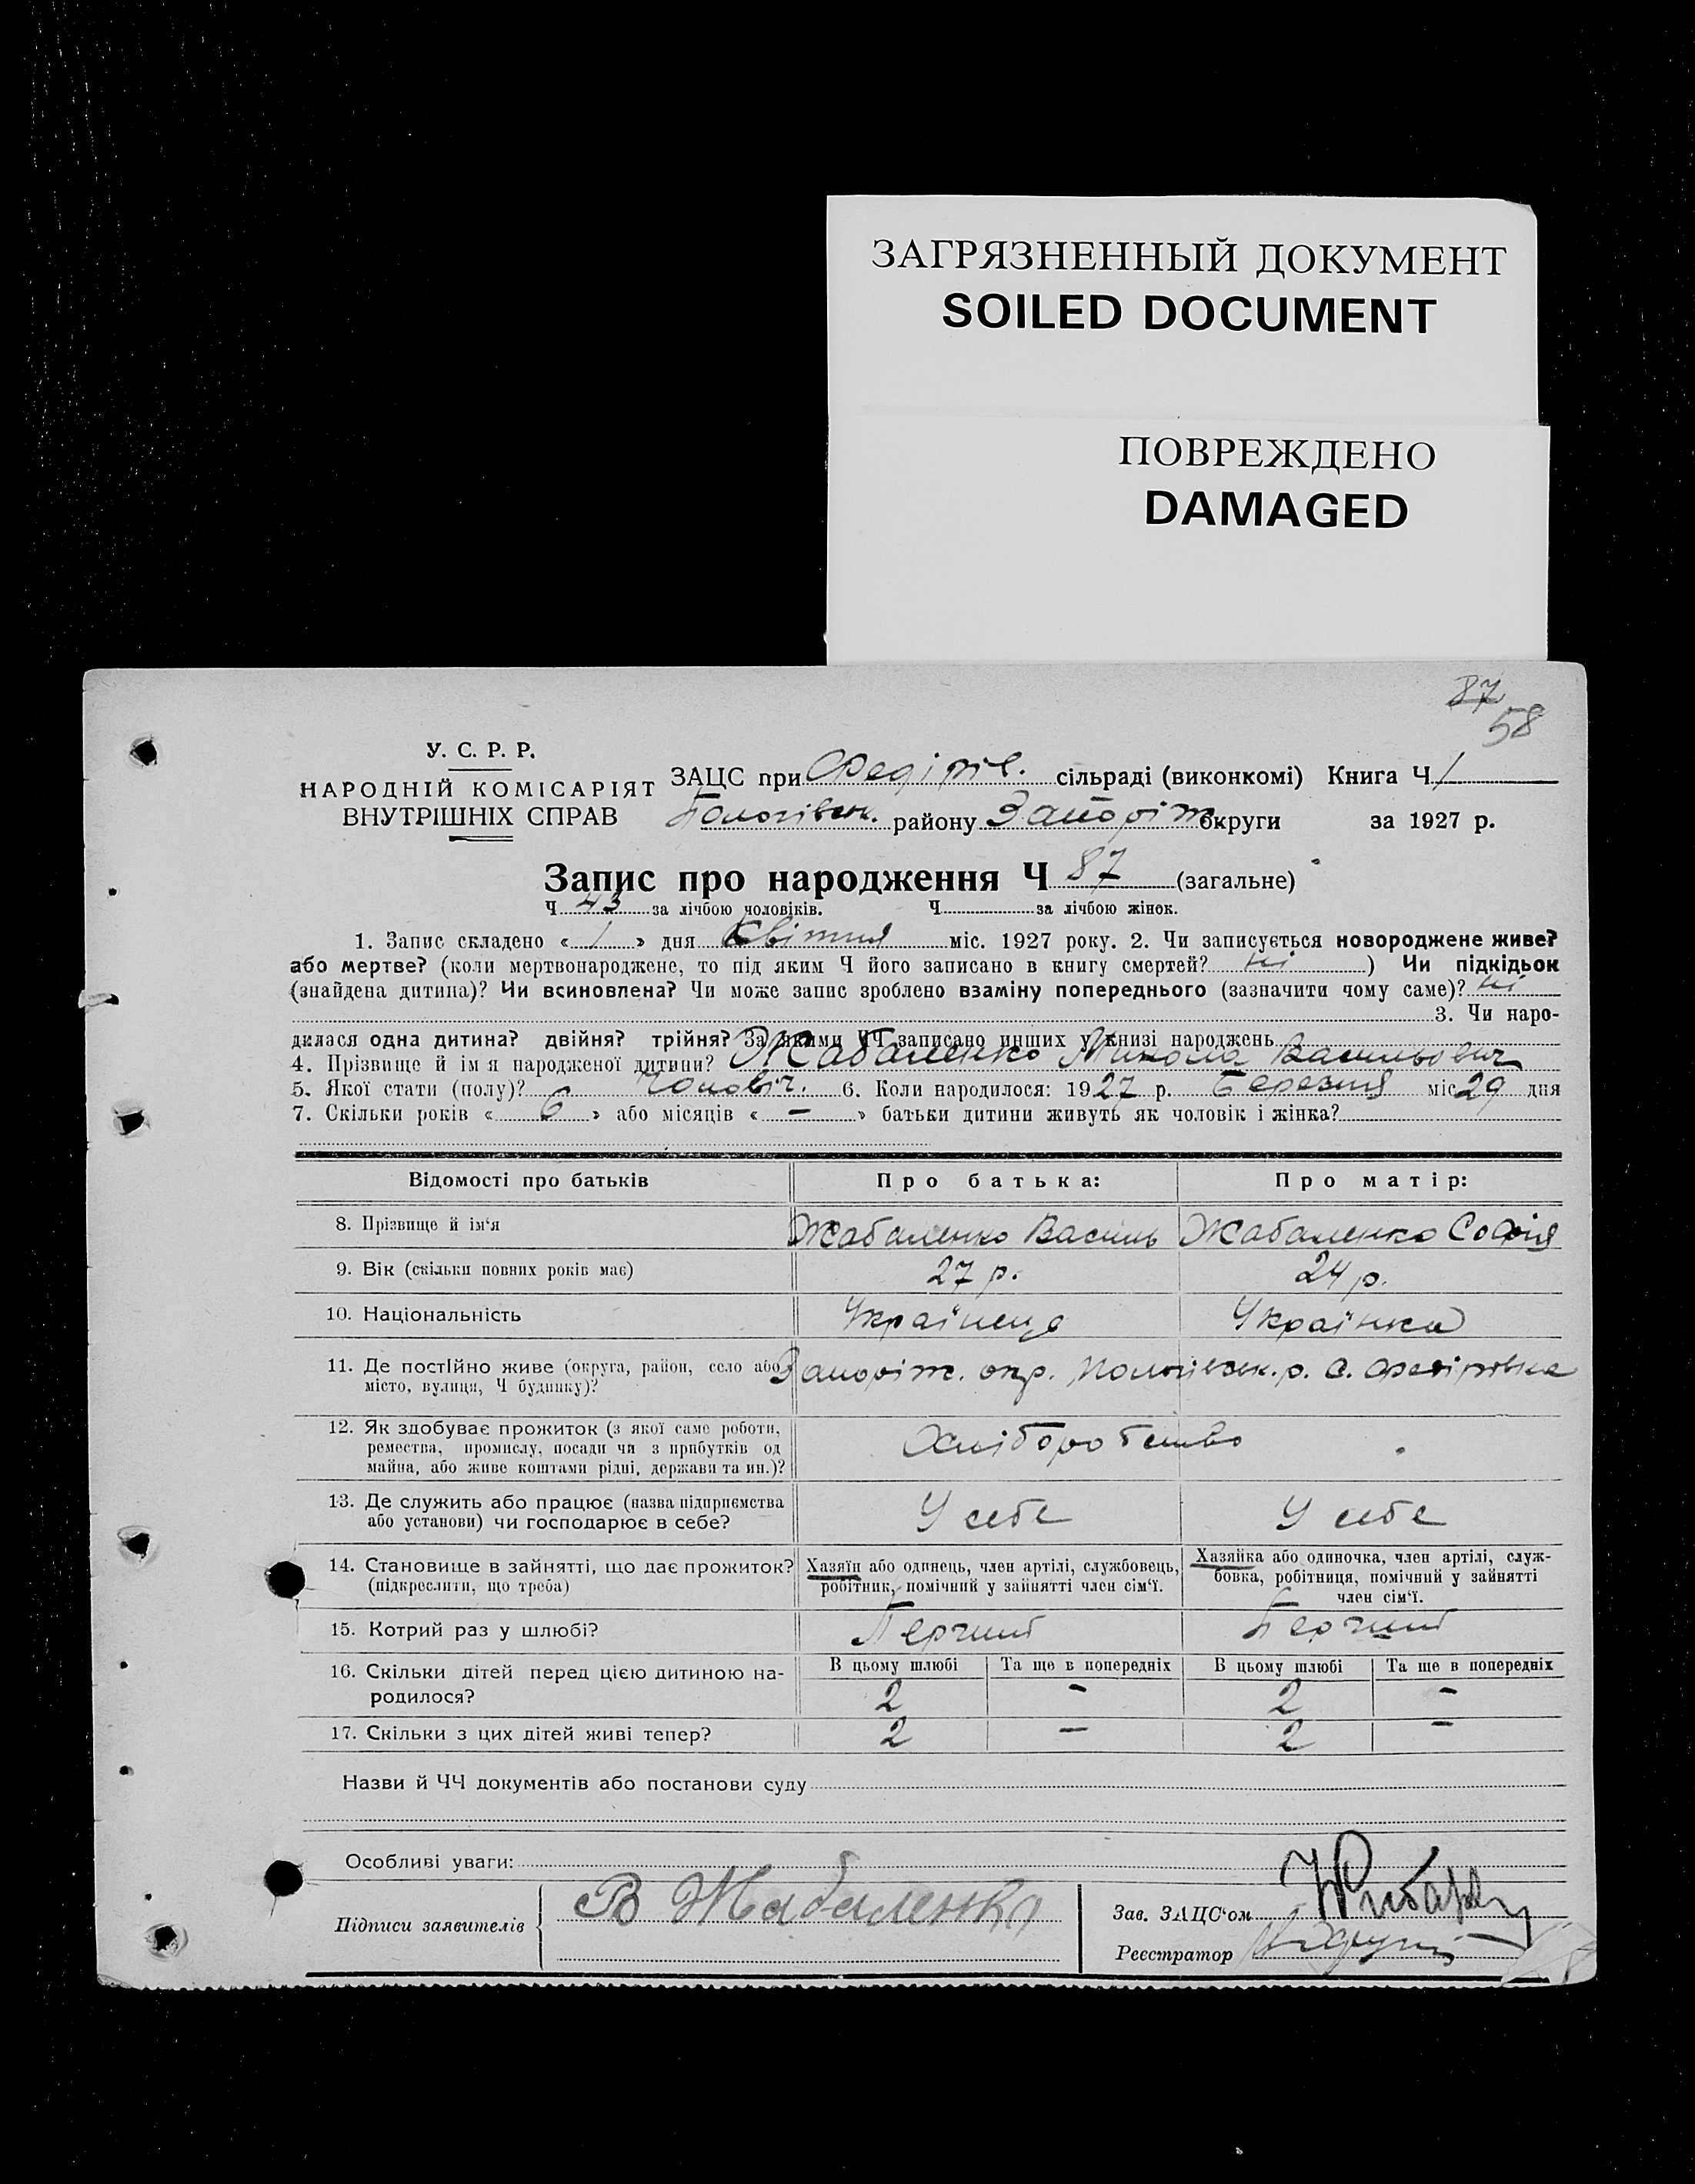 ЗАГРЯЗНЕННЫЙ ДОКУМЕНТ
SOILED DOCUMENT
ПОВРЕЖДЕНО
DAMAGED
87
58
У. С. Р. Р.
НАРОДНІЙ КОМІСАРІЯТ
ВНУТРІШНІХ СПРАВ
ЗАЦС при Федірів. сільраді (виконкомі) Книга Ч 1
Пологівськ. району Запоріж округи за 1927 р.
Запис про народження Ч 87 (загальне)
Ч 43 за лічбою чоловіків. Ч за лічбою жінок.
1. Запис складено « 1 » дня Квітня міс. 1927 року. 2. Чи записується новороджене живе?
або мертве? (коли мертвонароджене, то під яким Ч його записано в книгу смертей? ні ) Чи підкідьок
(знайдена дитина)? Чи всиновлена? Чи може запис зроблено взаміну попереднього (зазначити чому саме)? ні
3. Чи наро-
дилася одна дитина? двійня? трійня? За якими ЧЧ записано инших у книзі народжень
4. Прізвище й ім я народженої дитини? Жабаленко Микола Васильович
5. Якої стати (полу)? Чоловіч. 6. Коли народилося: 1927 р. Березня міс 29 дня
7. Скільки років « 6 » або місяців « — » батьки дитини живуть як чоловік і жінка?
Відомості про батьків Про батька: Про матір:
8. Прізвище й ім‘я Жабаленко Василь Жабаленко Софія
9. Вік (скільки повних років має) 27 р. 24 р.
10. Національність Українець Українка
11. Де постійно живе (округа, район, село або Запоріж. окр. Пологівськ. р. с. Федірівка
місто, вулиця, Ч будинку)?
12. Як здобуває прожиток (з якої саме роботи,
ремества, промислу, посади чи з прибутків од
майна, або живе коштами рідні, держави та ин.)? Хліборобство
13. Де служить або працює (назва підприємства
або установи) чи господарює в себе? У себе У себе
14. Становище в зайнятті, що дає прожиток?
(підкреслити, що треба)
Хазяїн або одинець, член артілі, службовець,
робітник, помічний у зайнятті член сім‘ї.
Хазяйка або одиночка, член артілі, служ-
бовка, робітниця, помічний у зайнятті
член сім‘ї.
15. Котрий раз у шлюбі? Перший Перший
16. Скільки дітей перед цією дитиною на-
родилося?
В цьому шлюбі Та ще в попередніх В цьому шлюбі Та ще в попередніх
2 — 2 —
17. Скільки з цих дітей живі тепер? 2 — 2 —
Назви й ЧЧ документів або постанови суду
Особливі уваги:
Підписи заявителів В Жабаленко
Зав. ЗАЦС‘ом
Реєстратор